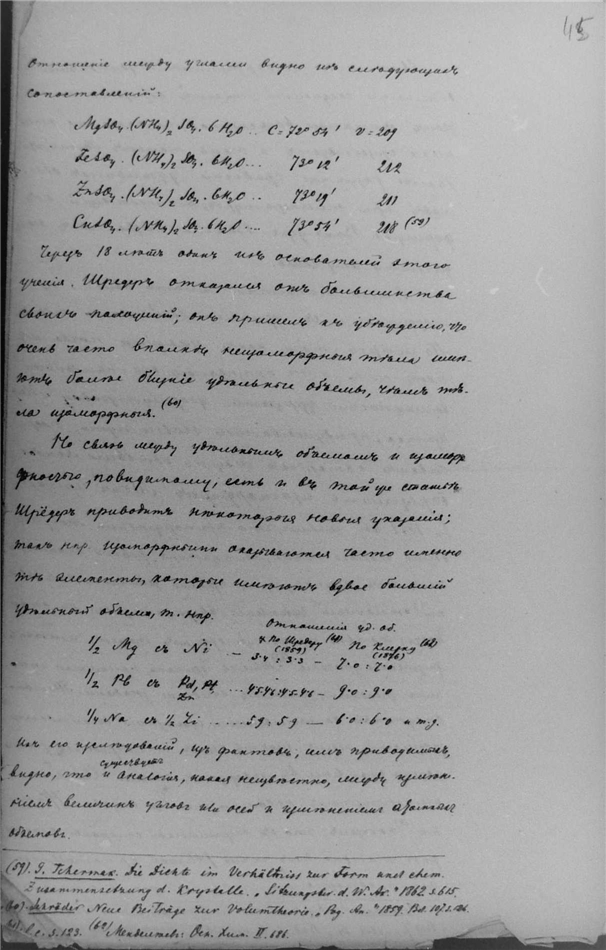 45
Отношенiе между углами видно изъ слѣдующихъ
сопоставленiй:
MgSO₄.(NH₄)₂SO₄.6H₂O... C=72°54′ v=209
FeSO₄.(NH₄)₂SO₄.6H₂O... 73°12′ 212
ZnSO₄.(NH₄)₂SO₄.6H₂O.. 73°19′ 211
CuSO₄.(NH₄)₂SO₄.6H₂O.... 73°54′ 218 (59)
Черезъ 18 лѣтъ одинъ изъ основателей этого
ученiя. Шредеръ отказался отъ большинства
своихъ положенiй; онъ пришелъ къ убѣжденiю, что
очень часто вполнѣ неизоморфныя тѣла имѣ-
ютъ болѣе близкiе удѣльные объемы, чѣмъ тѣ-
ла изоморфныя. (60)
Но связь между удѣльнымъ объемомъ и изомор
фностью, повидимому, есть и въ той же статьѣ
Шрёдеръ приводитъ нѣкоторыя новыя указанiя;
такъ нпр. изоморфными оказываются часто именно
тѣ элементы, которые имѣютъ вдвое большiй
удѣльный объемъ, т. нпр.
Отношенiя уд. об.
По Шредеру (61) По Кларку (62)
(1859) (1876)
½ Mg съ Ni — 3.4 : 3.3 — 7.0 : 7.0
½ Pb съ Pd, Pt, ...45.46:45.46 — 9.0 : 9.0
Zn
¼ Na съ ½ Li .....5.9 : 5.9 — 6.0 : 6.0 и т.д.
Изъ его изслѣдованiй, изъ фактовъ, имъ приводимыхъ,
существуетъ
видно, что и аналогiя, какая неизвѣстно, между измѣне-
нiемъ величинъ угловъ или осей и измѣненiемъ атомныхъ
объемовъ.
(59). G. Tschermak. Die Dichte im Verhältniss zur Form und chem.
Zusammensetzung d. Krystalle. „Sitzungsber. d. W. Ak." 1862. S. 615.
(60). Schröder Neue Beiträge zur Volumtheorie. „Pog. An." 1859. Bd. 107.
(61). l. c. S. 123. (62) Менделѣевъ: Осн. Хим. II. 686.